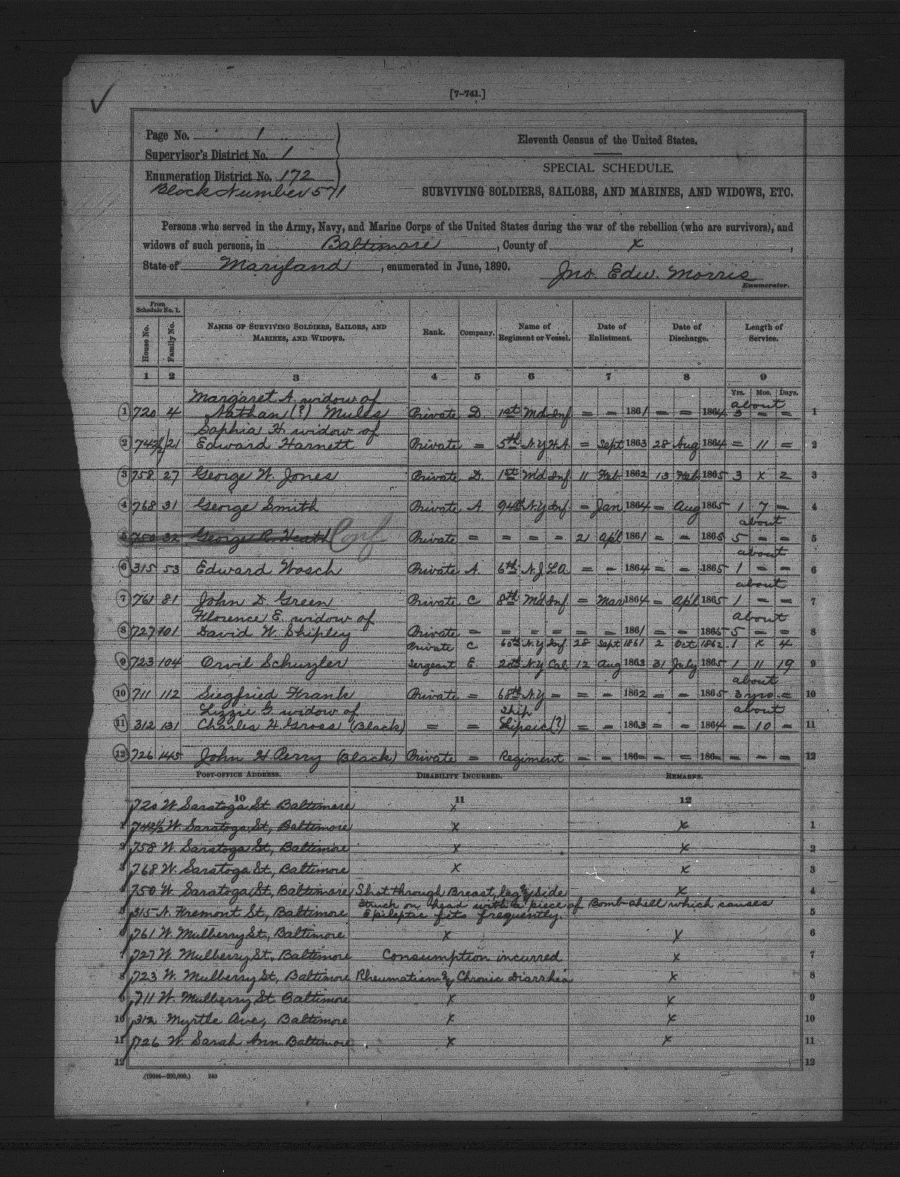 [7–761.]
Page No. 1
Supervisor's District No. 1
Enumeration District No. 172
Block Number 571
Eleventh Census of the United States.
SPECIAL SCHEDULE.
SURVIVING SOLDIERS, SAILORS, AND MARINES, AND WIDOWS, ETC.
Persons who served in the Army, Navy, and Marine Corps of the United States during the war of the rebellion (who are survivors), and
widows of such persons, in Baltimore, County of x,
State of Maryland, enumerated in June, 1890. Jno. Edw. Morris
Enumerator.
From Schedule No. 1.
House No. Family No. Names of Surviving Soldiers, Sailors, and Marines, and Widows. Rank. Company. Name of Regiment or Vessel. Date of Enlistment. Date of Discharge. Length of Service.
1 2 3 4 5 6 7 8 9
Yrs. Mos. Days.
Margaret A. widow of about
1 720 4 Nathan (?) Mules Private D. 1st Md Inf = = 1861 = = 1864 3 = = 1
Sophia H. widow of
2 742½ 21 Edward Harnett Private = 5th N.Y.H.A = Sept 1863 28 Aug 1864 = 11 = 2
3 758 27 George W. Jones Private D. 1st Md Inf 11 Feb 1862 13 Feb 1865 3 x 2 3
4 768 31 George Smith Private A. 94th N.Y Inf = Jan 1864 = Aug 1865 1 7 = 4
about
5 750 32 George R. Heath Conf Private = = = = 21 Apl 1861 = = 1865 5 = = 5
about
6 315 53 Edward Wosch Private A. 6th N.J L.A = = 1864 = = 1865 1 = = 6
about
7 761 81 John D. Green Private C 8th Md Inf = Mar 1864 = Apl 1865 1 = = 7
Florence E. widow of about
8 727 101 David W. Shipley Private = = = = = = 1861 = = 1865 5 = = 8
Private C 60th N.Y Inf 28 Sept 1861 2 Oct 1862 1 x 4
9 723 104 Orvil Schuyler Sergeant E. 20th N.Y Cal 12 Aug 1863 31 July 1865 1 11 19 9
about
10 711 112 Siegfried Frank Private = 68th N.Y = = = 1862 = = 1865 3 yrs = 10
Lizzie G. widow of Ship about
11 312 131 Charles H Gross (Black) = = Lipsic (?) = = 1863 = = 1864 = 10 = 11
12 726 145 John H Perry (Black) Private = Regiment = = 186= = = 186= = = = 12
Post-office Address. Disability Incurred. Remarks.
10 11 12
720 W Saratoga St. Baltimore x
1 742½ W Saratoga St, Baltimore x x 1
2 758 W Saratoga St, Baltimore x x 2
3 768 W. Saratoga St, Baltimore x x 3
4 750 W Saratoga St, Baltimore Shot through Breast, leg & Side x 4
Struck on head with a piece of Bomb-shell which causes
5 315 N. Fremont St, Baltimore Epileptic fits frequently. 5
6 761 W. Mulberry St. Baltimore x x 6
7 727 W. Mulberry St, Baltimore Consumption incurred x 7
8 723 W. Mulberry St, Baltimore Rheumatism & Chronic Diarrhea x 8
9 711 W. Mulberry St Baltimore x x 9
10 312 Myrtle Ave, Baltimore x x 10
11 726 W. Sarah Ann Baltimore x x 11
12 12